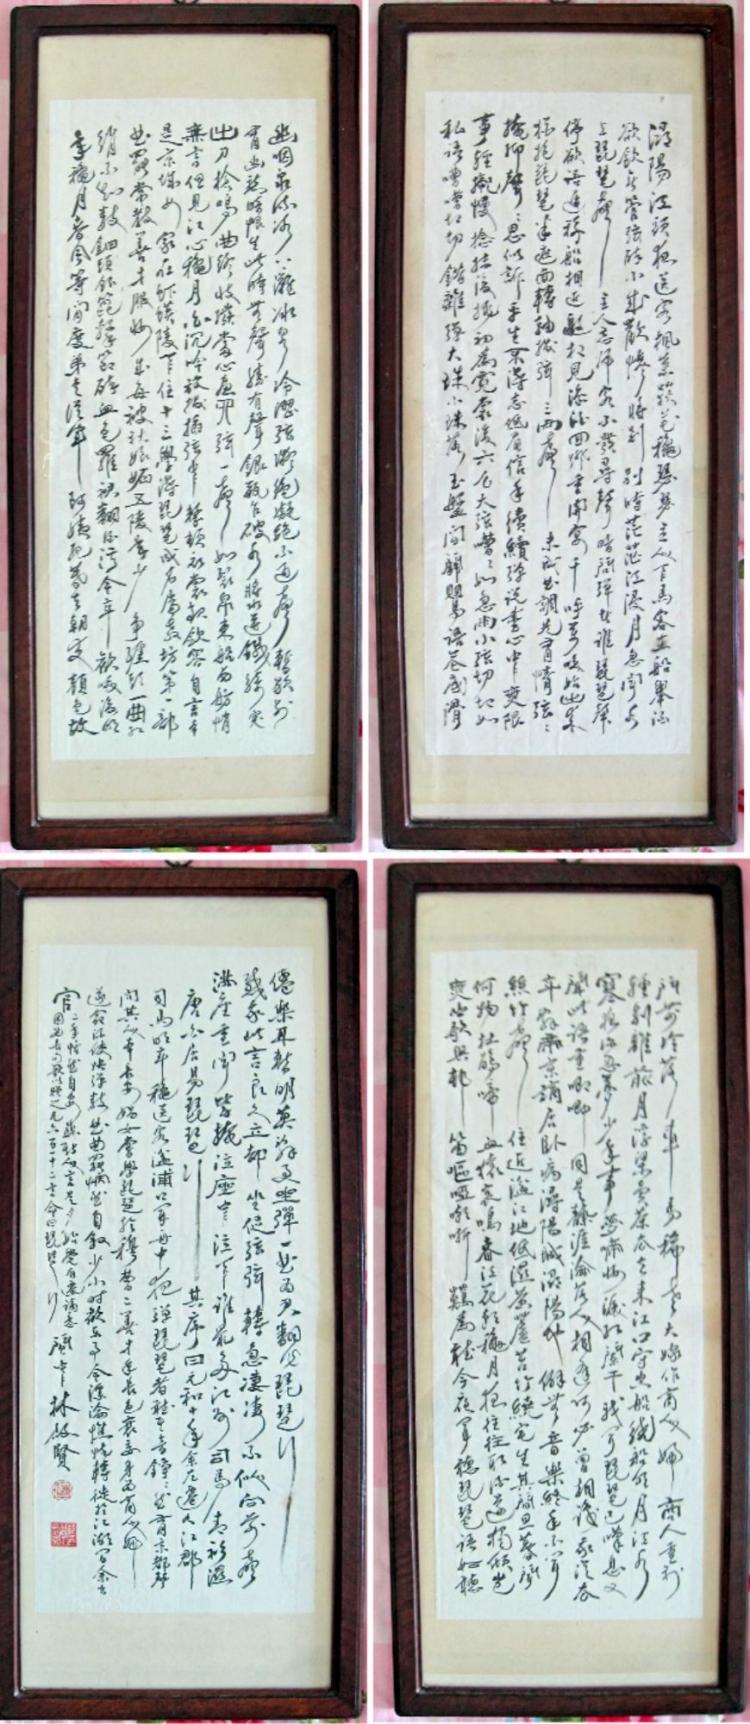 潯陽江頭夜送客楓葉荻花穐瑟瑟主人下馬客在船舉酒
欲飲無管弦醉不成歡慘將別別時茫茫江浸月忽聞水
上琵琶聲主人忘歸客不發尋聲暗問彈者誰琵琶聲
停欲語遲移船相近邀相見添酒回燈重開宴千呼萬喚始出來
猶抱琵琶半遮面轉軸撥弦三兩聲未成曲調先有情弦弦
掩抑聲聲思似訴平生不得志低眉信手續續彈說盡心中無限
事輕攏慢撚抹復挑初為霓裳後六幺大弦嘈嘈如急雨小弦切切如
私語嘈嘈切切錯雜彈大珠小珠落玉盤間關鶯語花底滑
幽咽泉流冰下灘冰泉冷澀弦凝絕凝絕不通聲暫歇別
有幽愁暗恨生此時無聲勝有聲銀瓶乍破水漿迸鐵騎突
出刀槍鳴曲終收撥當心畫四弦一聲如裂帛東船西舫悄
無言但見江心穐月白沉吟放撥插弦中整頓衣裳起歛容自言本
是京城女家在蝦蟆陵下住十三學得琵琶成名屬教坊第一部
曲罷常教善才服妝成每被秋娘妬五陵年少爭纏頭一曲紅
綃不知數鈿頭銀篦擊節碎血色羅裙翻酒污今年歡笑復明
年穐月春風等閒度弟走從軍阿姨死暮去朝來顏色故
門前冷落車馬稀老大嫁作商人婦商人重利
輕別離前月浮梁買茶去去來江口守空船繞船明月江水
寒夜深忽夢少年事夢啼妝淚紅闌干我聞琵琶已嘆息又
聞此語重唧唧同是天涯淪落人相逢何必曾相識我從去
年辭帝京謫居臥病潯陽城潯陽地僻無音樂終年不聞
絲竹聲住近湓江地低濕黃蘆苦竹繞宅生其間旦暮聞
何物杜鵑啼血猿哀鳴春江花朝穐月夜往往取酒還獨傾豈
無山歌與村笛嘔啞嘲哳難為聽今夜聞君琵琶語如聽
僊樂耳暫明莫辭更坐彈一曲為君翻作琵琶行
感我此言良久立却坐促弦弦轉急凄凄不似向前聲
滿座重聞皆掩泣座中泣下誰最多江州司馬青衫濕
唐白居易琵琶行 其序曰元和十年余左遷九江郡
司馬明年穐送客湓浦口聞舟中夜彈琵琶者聽其音錚錚然有京都聲
問其人本長安倡女嘗學琵琶於穆曹二善才年長色衰委身為賈人婦
遂命酒使快彈數曲曲罷憫然自敘少小時歡樂事今漂淪憔悴轉徙於江湖間余出
官二年恬然自安感斯人言是夕始覺有遷謫意
因為長句歌以贈之凡六百一十二言命曰琵琶行